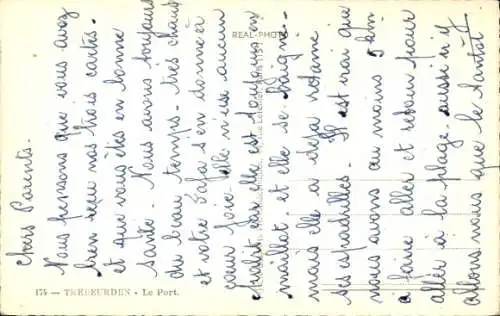 Chers Parents.
Nous pensons que vous avez
bien reçu nos trois cartes.
et que vous êtes en bonne
santé. Nous avons toujours
du beau temps. très chaud
et votre Zaza s'en donne à
cœur joie. elle n'use aucun
habit car elle est toujours en
maillot et elle se baigne.
mais elle a déjà retourné
ses espadrilles. Il est vrai que
nous avons au moins 5 km
à faire aller et retour pour
aller à la plage. aussi n'y
allons nous que le tantôt
REAL-PHOTO
174 - TREBEURDEN - Le Port.